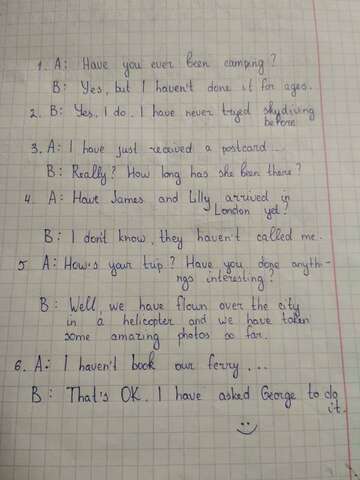 1. A: Have you ever been camping?
B: Yes, but I haven't done it for ages.
2. B: Yes, I do. I have never tryed skydiving
before
3. A: I have just received a postcard...
B: Really? How long has she been there?
4. A: Have James and Lilly arrived in
London yet?
B: I don't know, they haven't called me.
5 A: How's your trip? Have you done anyth-
ngs interesting?
B: Well, we have flown over the city
in a helicopter and we have taken
some amazing photos so far.
6. A: I haven't book our ferry...
B: That's OK. I have asked George to do
it.